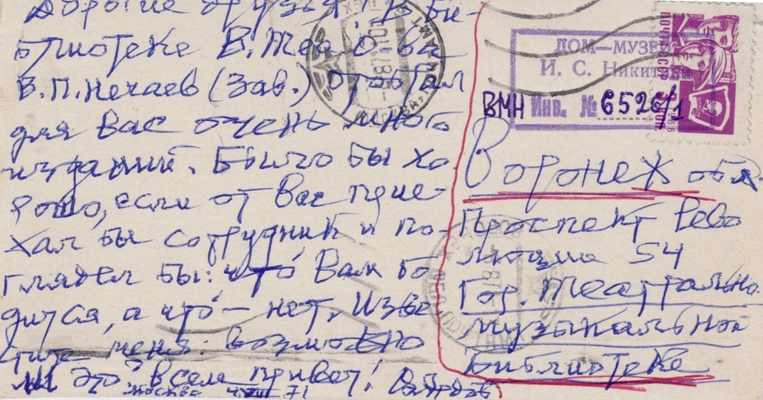 Дорогие друзья! В Би-
блиотеке В.Теа о ва
В.П.Нечаев (Зав.) отобрал
для Вас очень много
изданий. Было бы хо-
рошо, если от Вас прие-
хал бы сотрудник и по-
глядел бы: что Вам го-
дится, а что – нет. Изве
стите меня: возможно
ли это? Всем привет!
Москва 71
ДОМ—МУЗЕЙ
И. С. Никитина
ВМН Инв. № 6526/1
Воронеж обл.
Проспект Рево
люции 54
Гор. Театрально
музыкальной
библиотеке